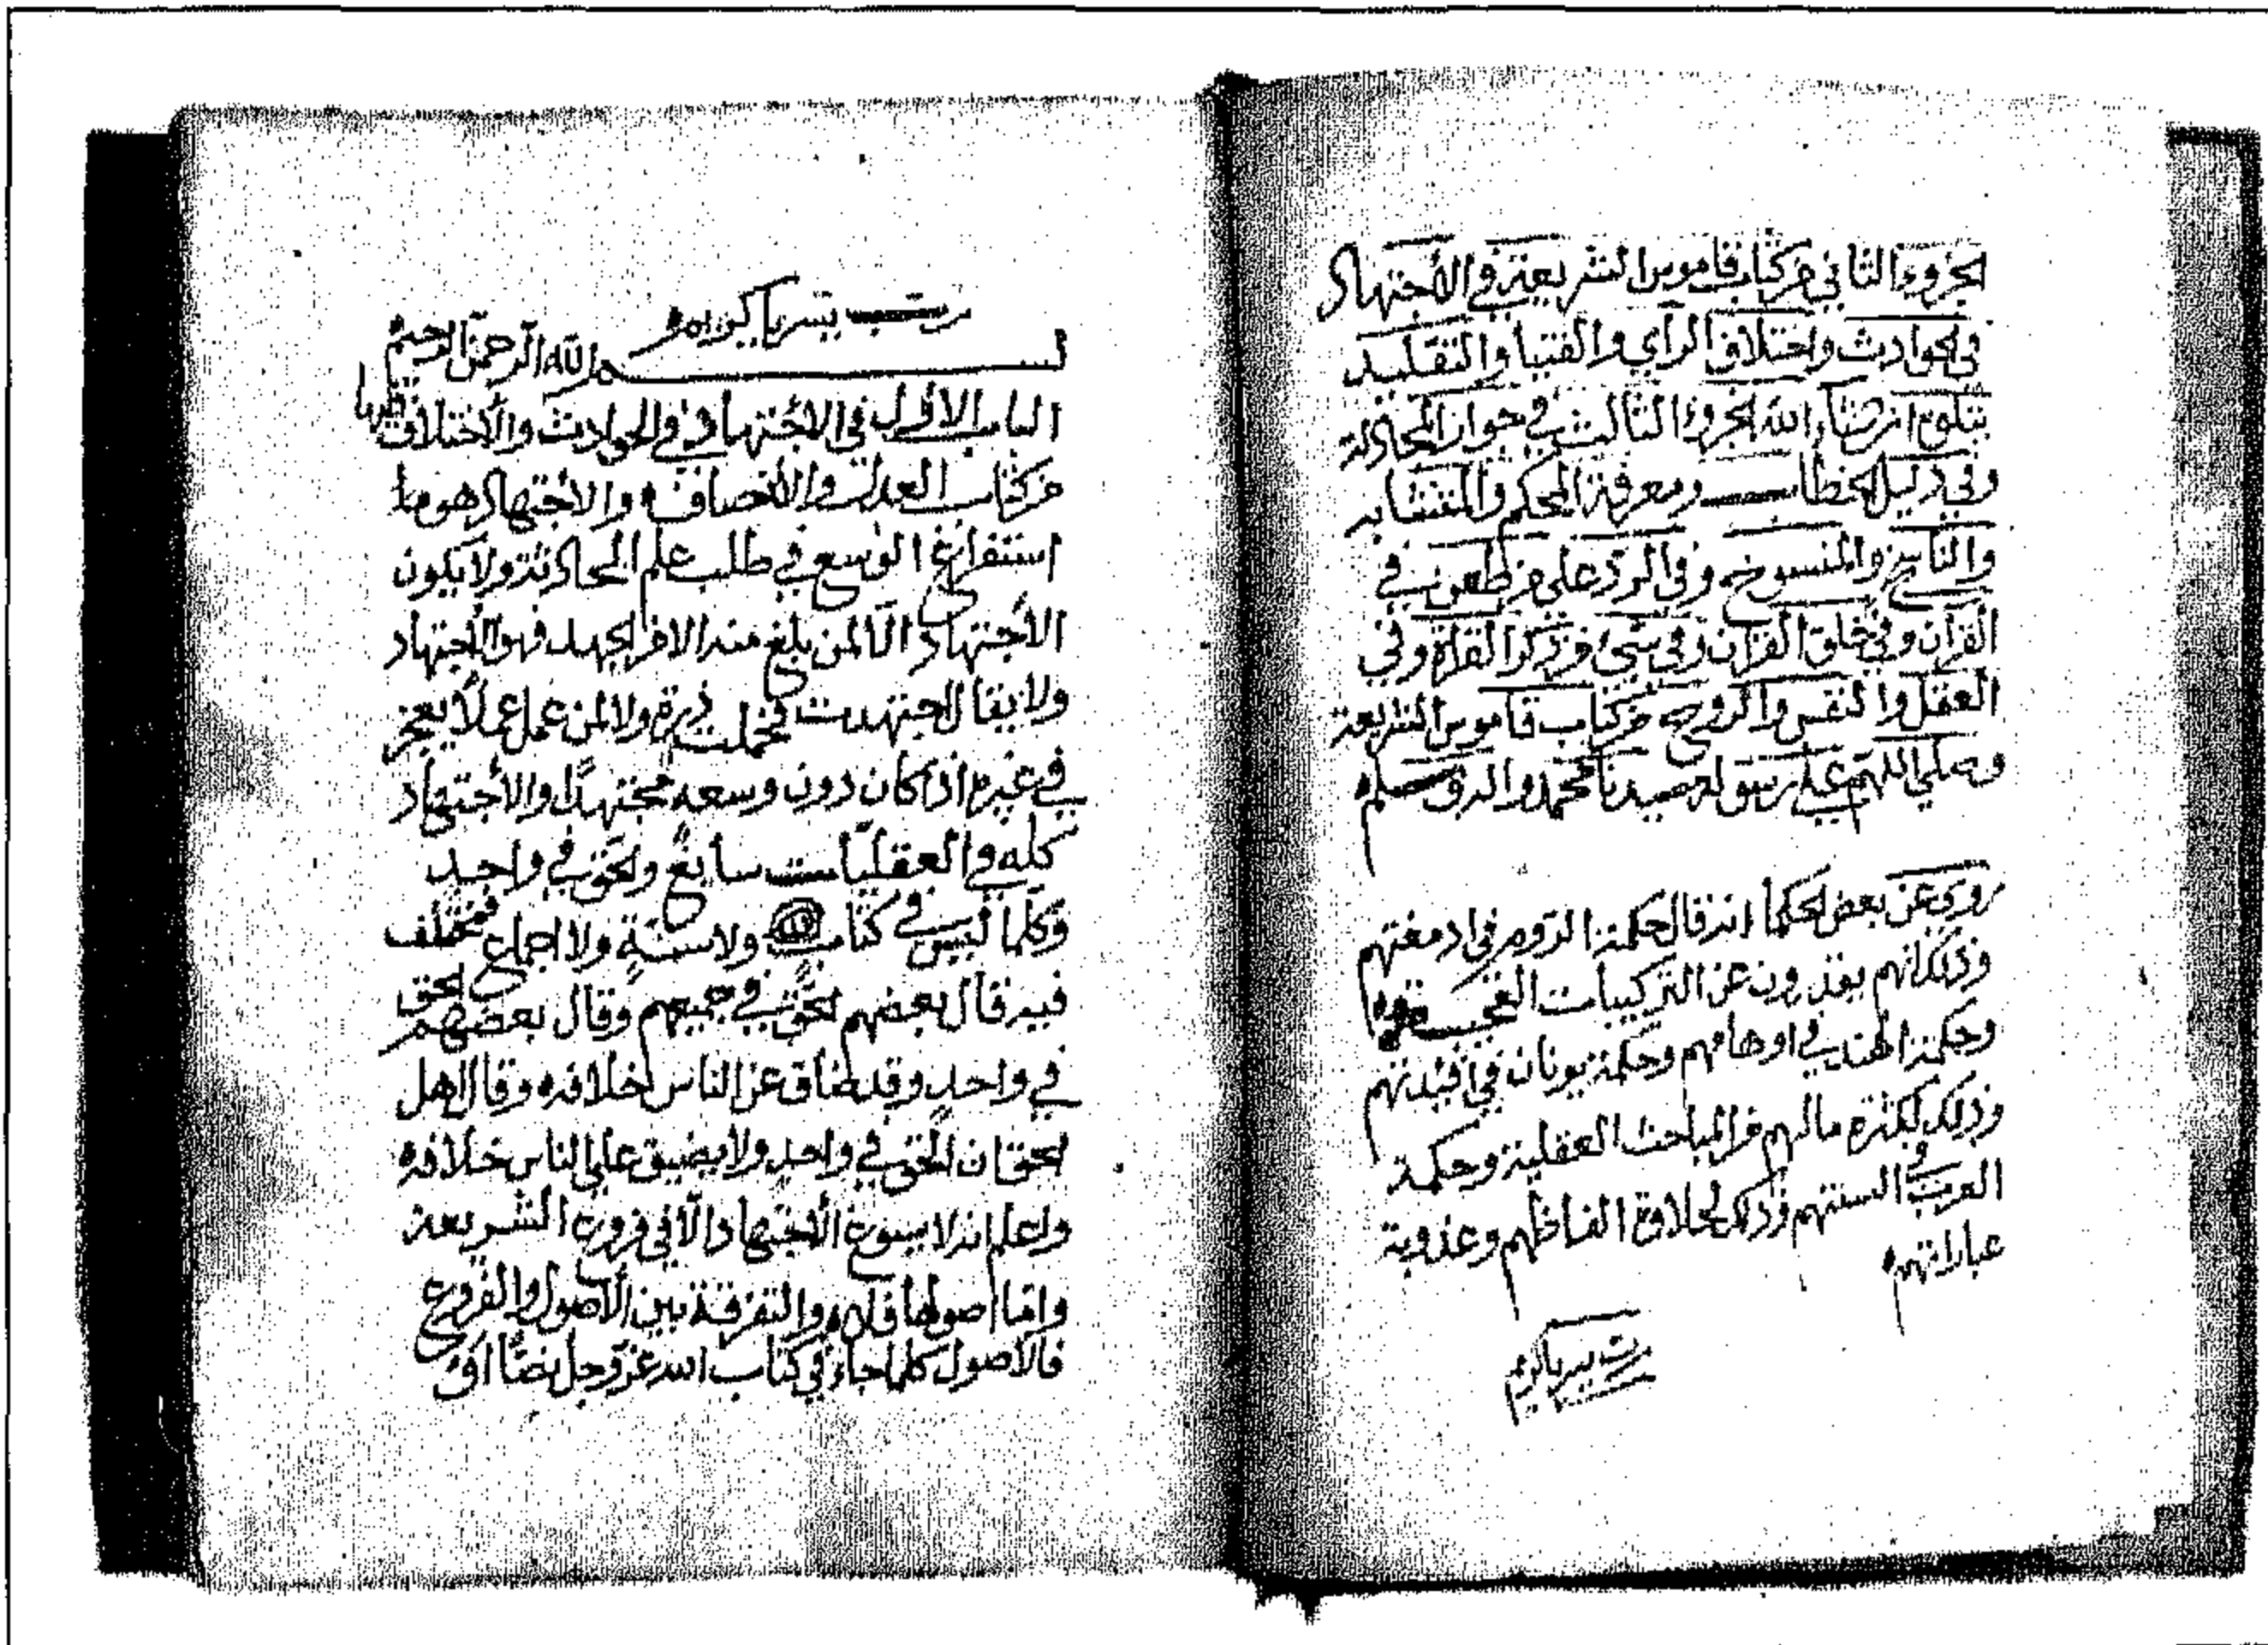 الجزوء الثاني من كتاب قاموس الشريعة في الأجتهاد
في الحوادث واختلاف الرأي والفتيا والتقليد
يتلوه ان شاء الله الجزوء الثالث في جواز المحادثة
وفي دليل الخطاب ومعرفة المحكم والمتشابه
والناسخ والمنسوخ وفي الرد على من طعن في
القرآن وفي خلق القرآن وفي شيء من ذكر القراة وفي
العقل والنفس والروح من كتاب قاموس الشريعة
وصلى اللهم على رسوله سيدنا محمد واله وسلم
روي عن بعض الحكمأ انه قال حكمة الروم في ادمغتهم
وذلك انهم يقدرون عن التركيبات العجيبة
وحكمة الهند في اوهامهم وحكمة يونان في افئدتهم
وذلك لكثرة مالهم من المباحث العقلية وحكمة
العرب في السنتهم وذلك لحلاوة الفاظهم وعذوبة
عباراتهم
رب يسر يا كريم
رب يسر يا كريم
بسم الله الرحمن الرحيم
الباب الاول في الاجتهاد في الحوادث والأختلاف فيها
من كتاب العدل والأنصاف والاجتهاد هو ما
استفراغ الوسع في طلب علم الحادثة ولا يكون
الأجتهاد الا لمن بلغ منه الامر الجهد فهو الأجتهاد
ولا يقال اجتهدت فحملت ذرة ولا لمن عمل عملا يعجز
في غيره اذا كان دون وسعه مجتهدا والأجتهاد
كله في العقليات سايغ والحق في واحد
وكلما ليس في كتاب ولا سنة ولا اجماع فمختلف
فيه قال بعضهم الحق في جميعهم وقال بعضهم الحق
في واحد وقد ضاق عن الناس خلافه وقال اهل
الحق ان الحق في واحد ولا يضيق على الناس خلافه
واعلم انه لا يسوغ الأجتهاد الا في فروع الشريعة
واما اصولها فلا والتفرقة بين الأصول والفروع
فالأصول كلما جاء في كتاب الله عز وجل نصا او